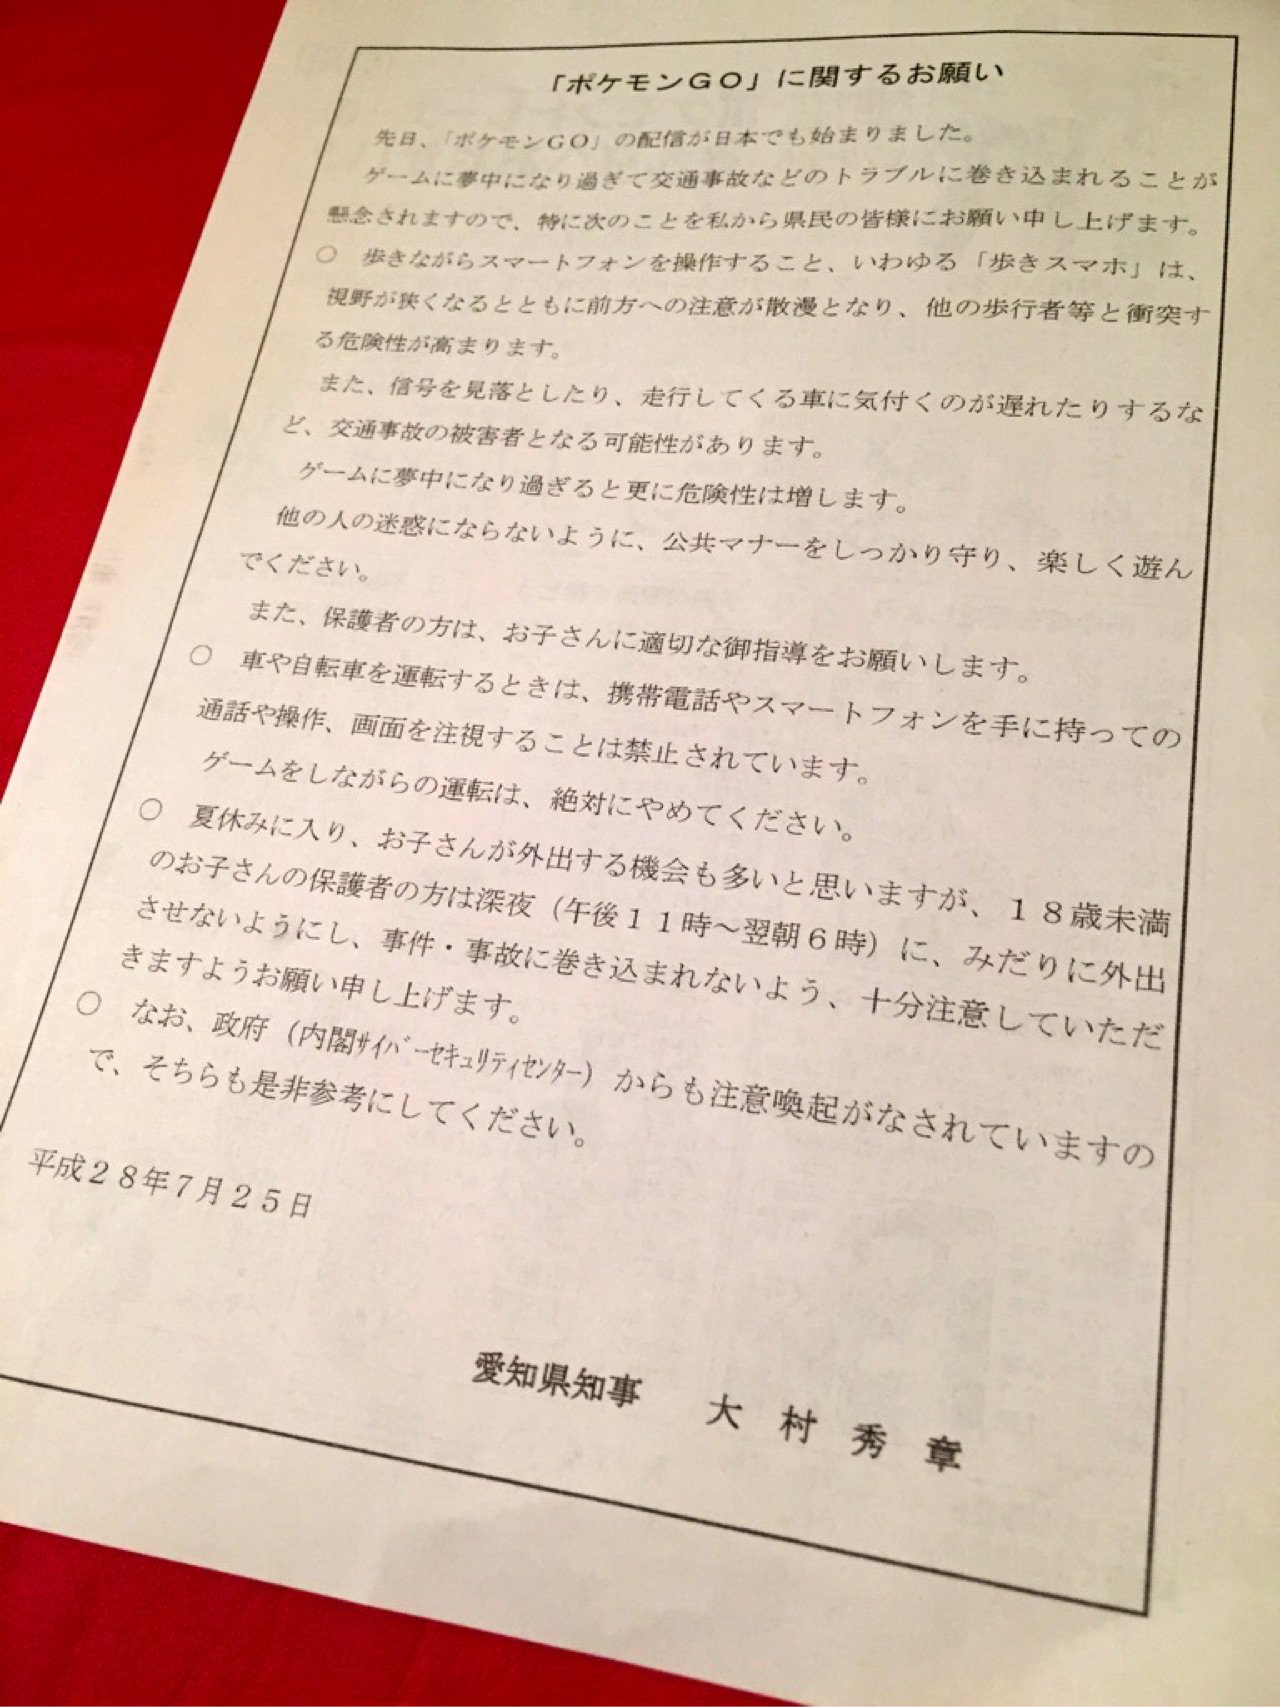 「ポケモンＧＯ」に関するお願い
先日、「ポケモンＧＯ」の配信が日本でも始まりました。
ゲームに夢中になり過ぎて交通事故などのトラブルに巻き込まれることが
懸念されますので、特に次のことを私から県民の皆様にお願い申し上げます。
○　歩きながらスマートフォンを操作すること、いわゆる「歩きスマホ」は、
視野が狭くなるとともに前方への注意が散漫となり、他の歩行者等と衝突す
る危険性が高まります。
また、信号を見落としたり、走行してくる車に気付くのが遅れたりするな
ど、交通事故の被害者となる可能性があります。
ゲームに夢中になり過ぎると更に危険性は増します。
他の人の迷惑にならないように、公共マナーをしっかり守り、楽しく遊ん
でください。
また、保護者の方は、お子さんに適切な御指導をお願いします。
○　車や自転車を運転するときは、携帯電話やスマートフォンを手に持っての
通話や操作、画面を注視することは禁止されています。
ゲームをしながらの運転は、絶対にやめてください。
○　夏休みに入り、お子さんが外出する機会も多いと思いますが、１８歳未満
のお子さんの保護者の方は深夜（午後１１時～翌朝６時）に、みだりに外出
させないようにし、事件・事故に巻き込まれないよう、十分注意していただ
きますようお願い申し上げます。
○　なお、政府（内閣ｻｲﾊﾞｰｾｷｭﾘﾃｨｾﾝﾀｰ）からも注意喚起がなされていますの
で、そちらも是非参考にしてください。
平成２８年７月２５日
愛知県知事　大　村　秀　章